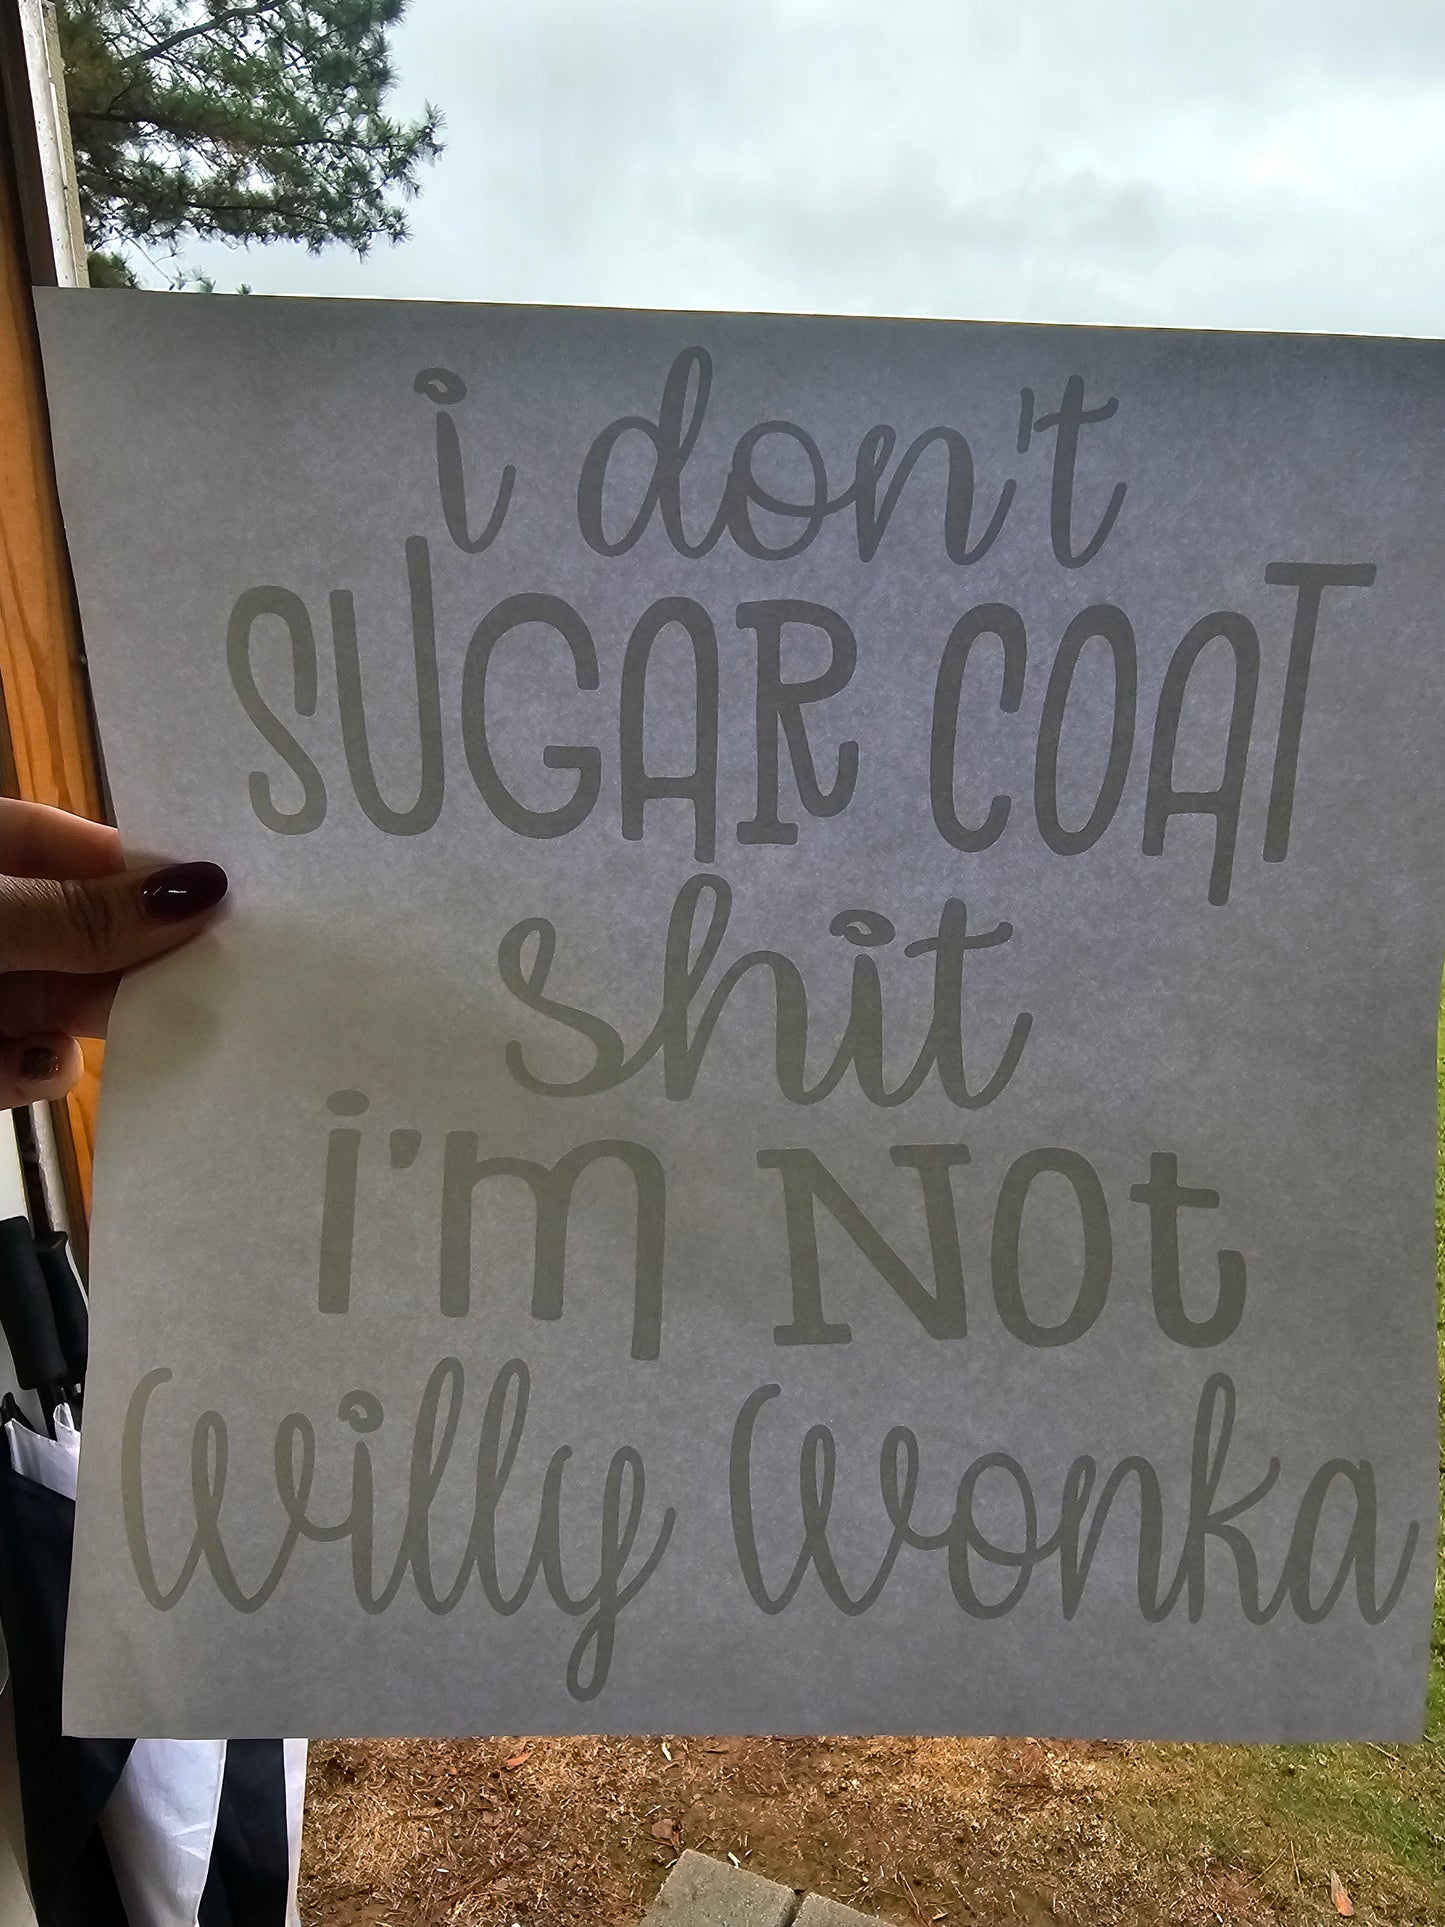 i don't
SUGAR COAT
shit
i'm NOt
Willy Wonka